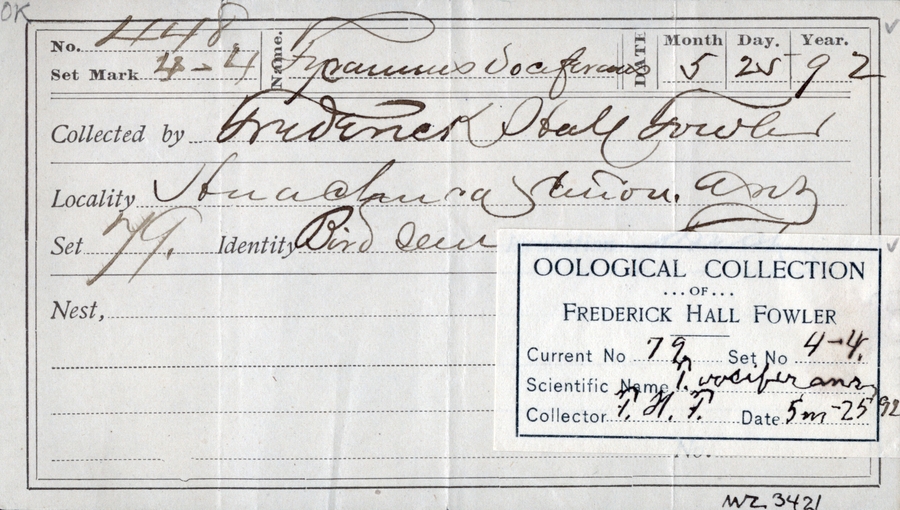 OK
No. 448 Name. Tyrannus Vociferans DATE Month Day. Year.
Set Mark 4-4 5 25 92
Collected by Frederick Hall Fowler
Locality Huachuca Station. Ariz
Set 79. Identity Bird seen
Nest,
OOLOGICAL COLLECTION
...OF...
FREDERICK HALL FOWLER
Current No 79 Set No 4-4.
Scientific Name T. vociferans
Collector F. H. F. Date 5m-25 '92
No.
WZ 3421